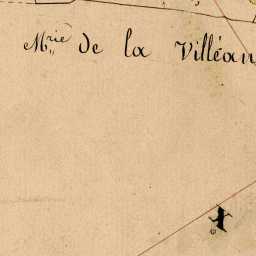 M.rie de la Villéan